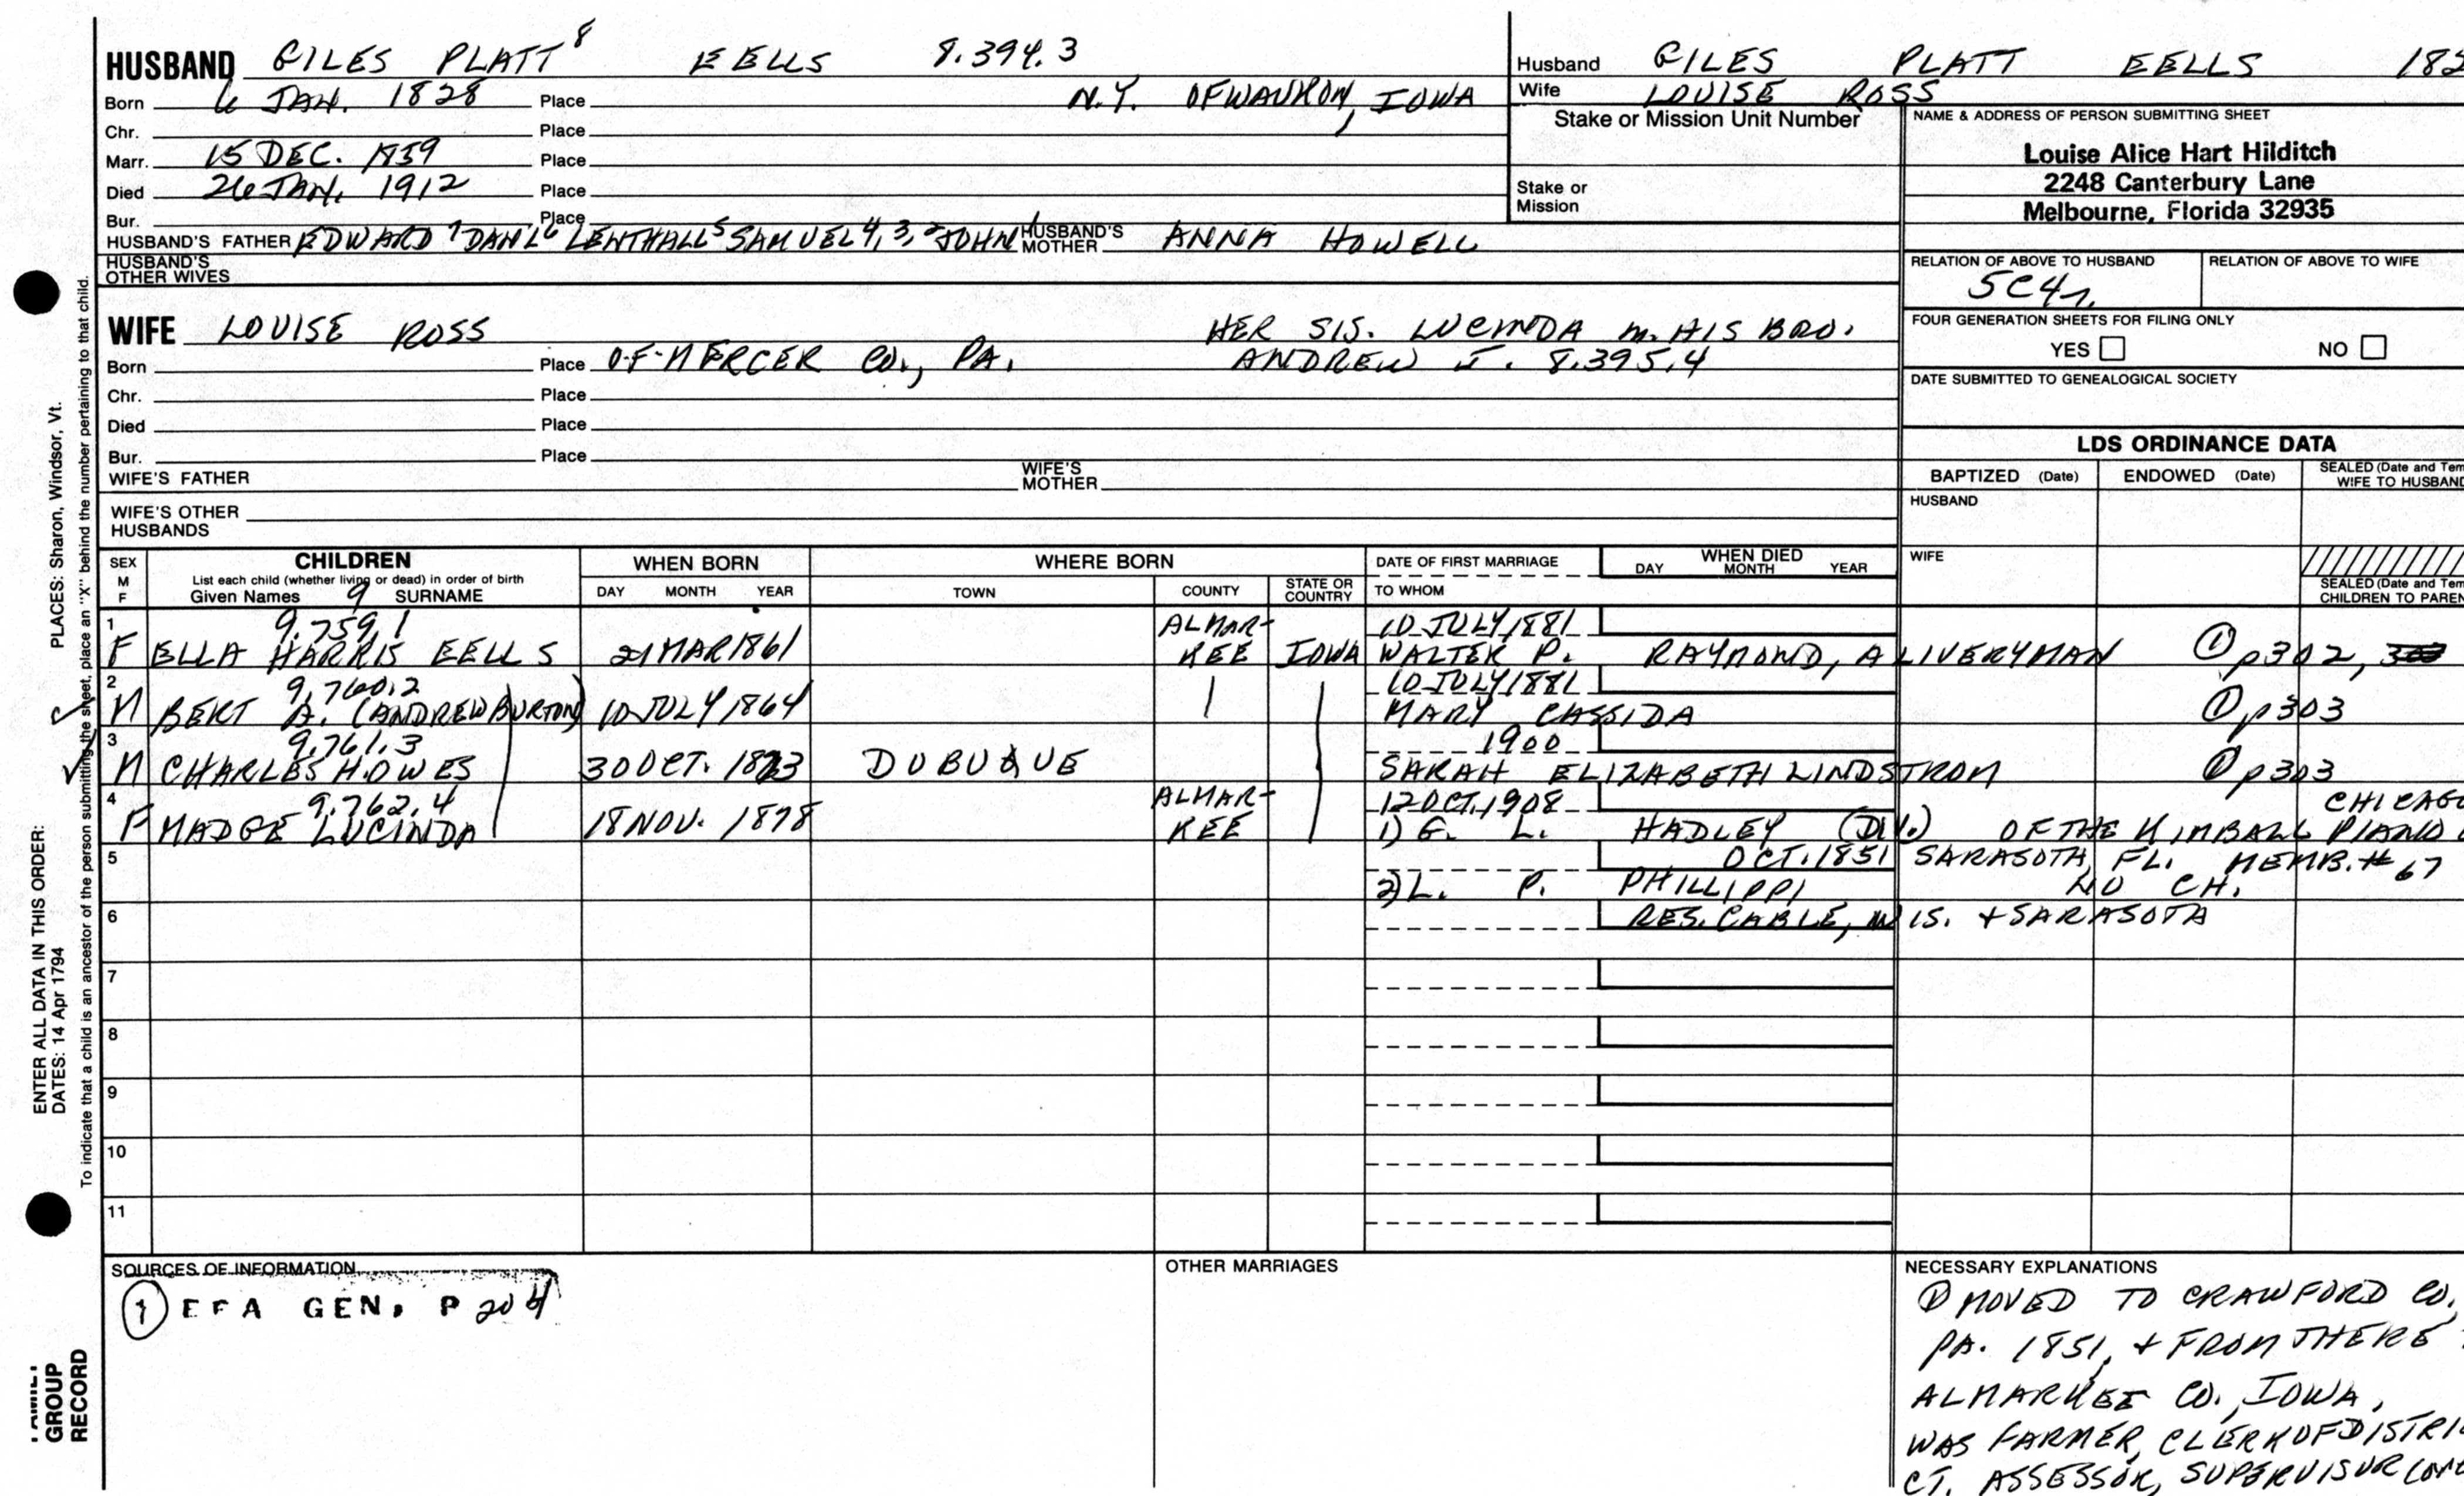 HUSBAND GILES PLATT 8 EELLS 8.394.3
Born 6 JAN. 1828 Place N.Y. OF WAUKON, IOWA
Chr. Place
Marr. 15 DEC. 1859 Place
Died 26 JAN. 1912 Place
Bur. Place
HUSBAND'S FATHER EDWARD 7 DAN'L 6 LENTHALL 5 SAMUEL 4, 3, 2 JOHN 1 HUSBAND'S MOTHER ANNA HOWELL
HUSBAND'S OTHER WIVES
Husband GILES PLATT EELLS 182
Wife LOUISE ROSS
Stake or Mission Unit Number
Stake or Mission
NAME & ADDRESS OF PERSON SUBMITTING SHEET
Louise Alice Hart Hilditch
2248 Canterbury Lane
Melbourne, Florida 32935
RELATION OF ABOVE TO HUSBAND RELATION OF ABOVE TO WIFE
5C4r.
FOUR GENERATION SHEETS FOR FILING ONLY
YES NO
DATE SUBMITTED TO GENEALOGICAL SOCIETY
WIFE LOUISE ROSS HER SIS. LUCINDA m. HIS BRO.
Born Place OF MERCER CO., PA. ANDREW J. 8.395.4
Chr. Place
Died Place
Bur. Place
WIFE'S FATHER WIFE'S MOTHER
WIFE'S OTHER HUSBANDS
LDS ORDINANCE DATA
BAPTIZED (Date) ENDOWED (Date) SEALED (Date and Tem
WIFE TO HUSBAND
HUSBAND
WIFE
SEALED (Date and Tem
CHILDREN TO PAREN
SEX M F CHILDREN WHEN BORN WHERE BORN DATE OF FIRST MARRIAGE WHEN DIED
List each child (whether living or dead) in order of birth
Given Names 9 SURNAME DAY MONTH YEAR TOWN COUNTY STATE OR COUNTRY TO WHOM DAY MONTH YEAR
1 9.759.1 ALMAR- 10 JULY 1881
F ELLA HARRIS EELLS 21 MAR 1861 KEE IOWA WALTER P. RAYMOND, A LIVERYMAN ① p302,
2 9.760.2 10 JULY 1881
M BERT A. (ANDREW BURTON) 10 JULY 1864 MARY CASSIDA ① p303
3 9.761.3 1900
M CHARLES HOWES 30 OCT. 1873 DUBUQUE SARAH ELIZABETH LINDSTROM ① p303
4 9.762.4 ALMAR- 12 OCT. 1908 CHICAGO
F MADGE LUCINDA 18 NOV. 1878 KEE 1) G. L. HADLEY (DIV.) OF THE KIMBALL PIANO
5 OCT. 1851 SARASOTA, FL. MEMB. # 67
2) L. P. PHILLIPPI NO CH.
6 RES. CABLE, WIS. + SARASOTA
7
8
9
10
11
SOURCES OF INFORMATION
① EFA GEN. P 204
OTHER MARRIAGES
NECESSARY EXPLANATIONS
① MOVED TO CRAWFORD CO.,
PA. 1851, + FROM THERE
ALMARKEE CO., IOWA,
WAS FARMER, CLERK OF DISTRI
CT. ASSESSOR, SUPERVISOR
ENTER ALL DATA IN THIS ORDER:
DATES: 14 Apr 1794 PLACES: Sharon, Windsor, Vt.
To indicate that a child is an ancestor of the person submitting the sheet, place an "X" behind the number pertaining to that child.
FAMILY
GROUP
RECORD